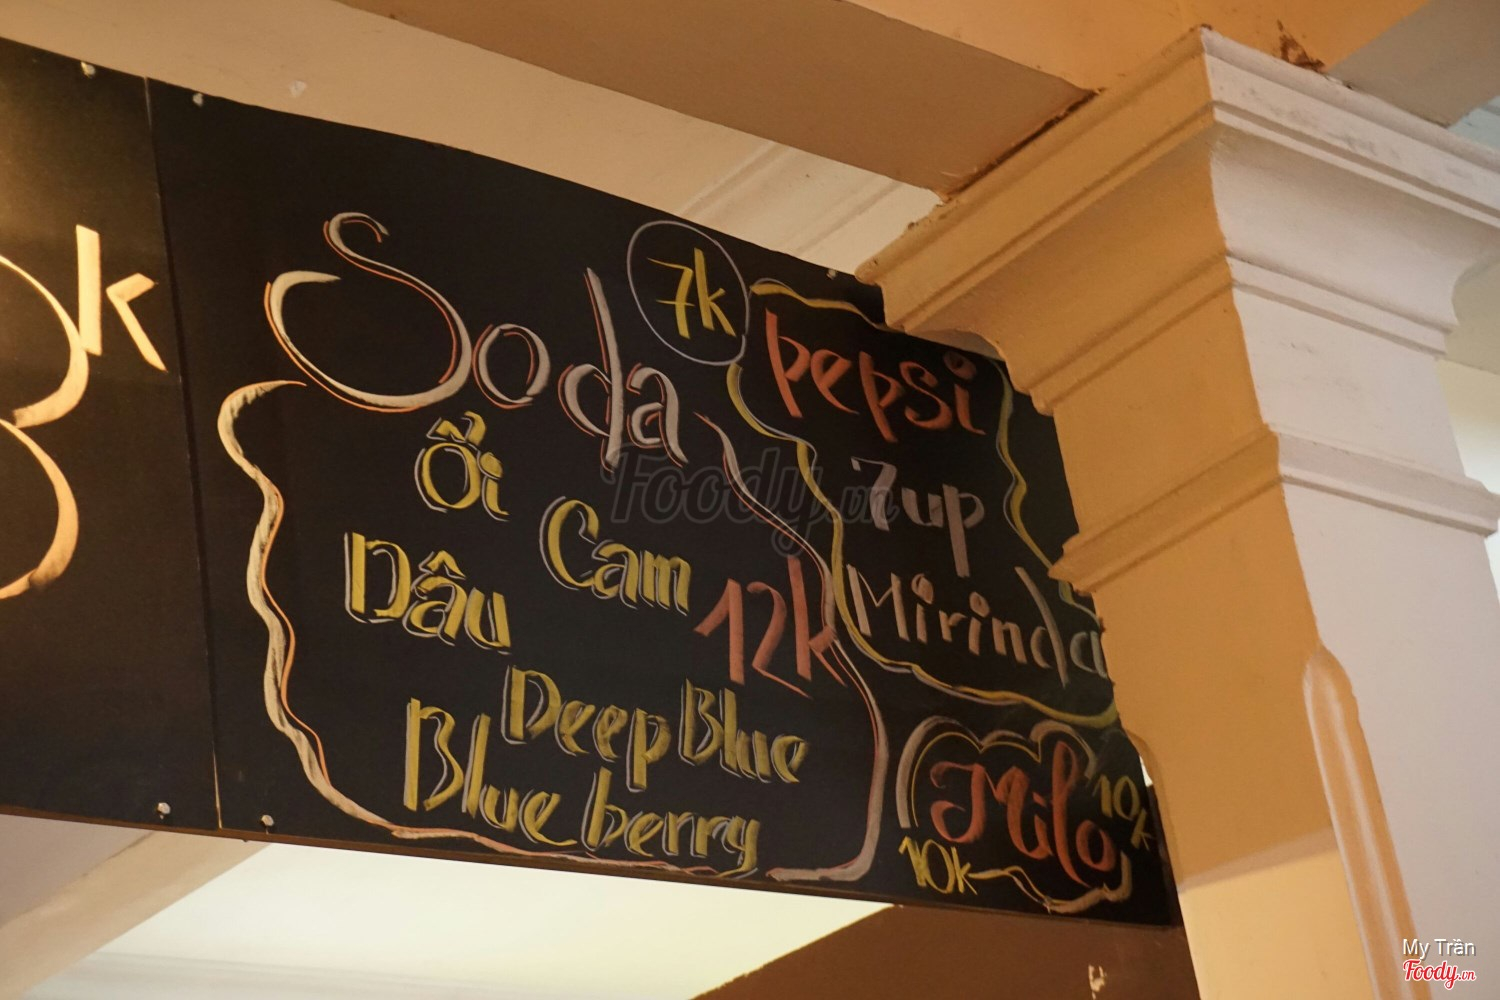 k
Soda
Ổi
Cam
Dâu
12k
Deep Blue
Blue berry
7k
pepsi
7up
Mirinda
Milo
10k
10k
Foody.vn
My Trần
Foody.vn